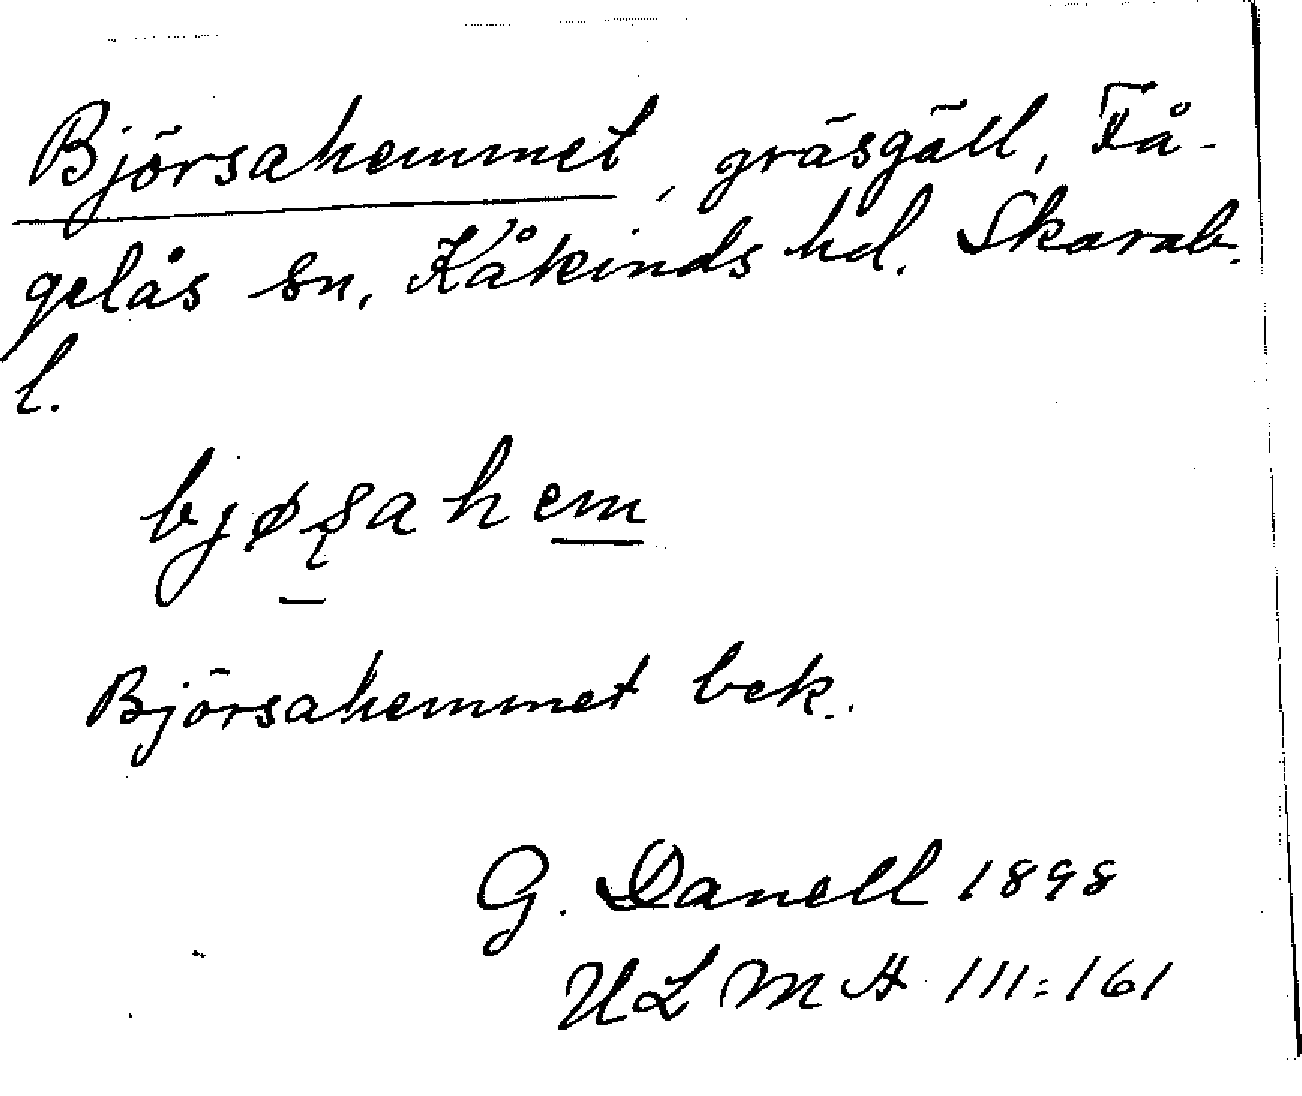 Björsahemmet, gräsgäll, Få-
gelås sn, Kåkinds hd. Skarab.
l.
bjøʂahem
Björsahemmet bek.
G. Danell 1898
ULMA 111:161